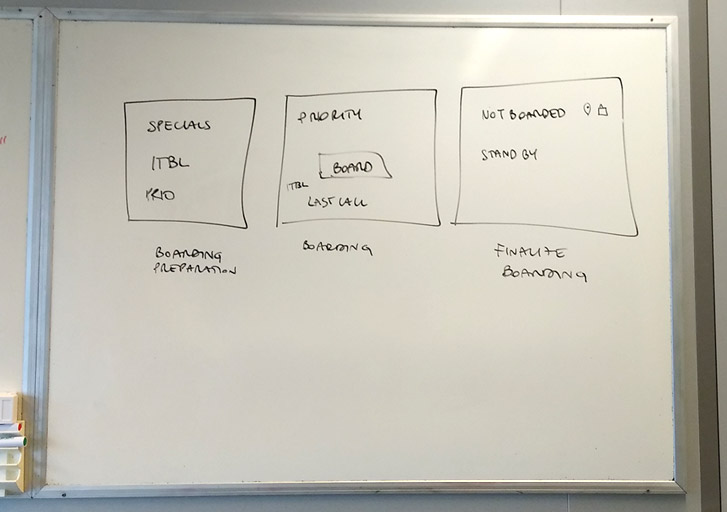 SPECIALS
ITBL
PRIO
BOARDING
PREPARATION
PRIORITY
BOARD
ITBL
LAST CALL
BOARDING
NOT BOARDED
STAND BY
FINALIZE
BOARDING